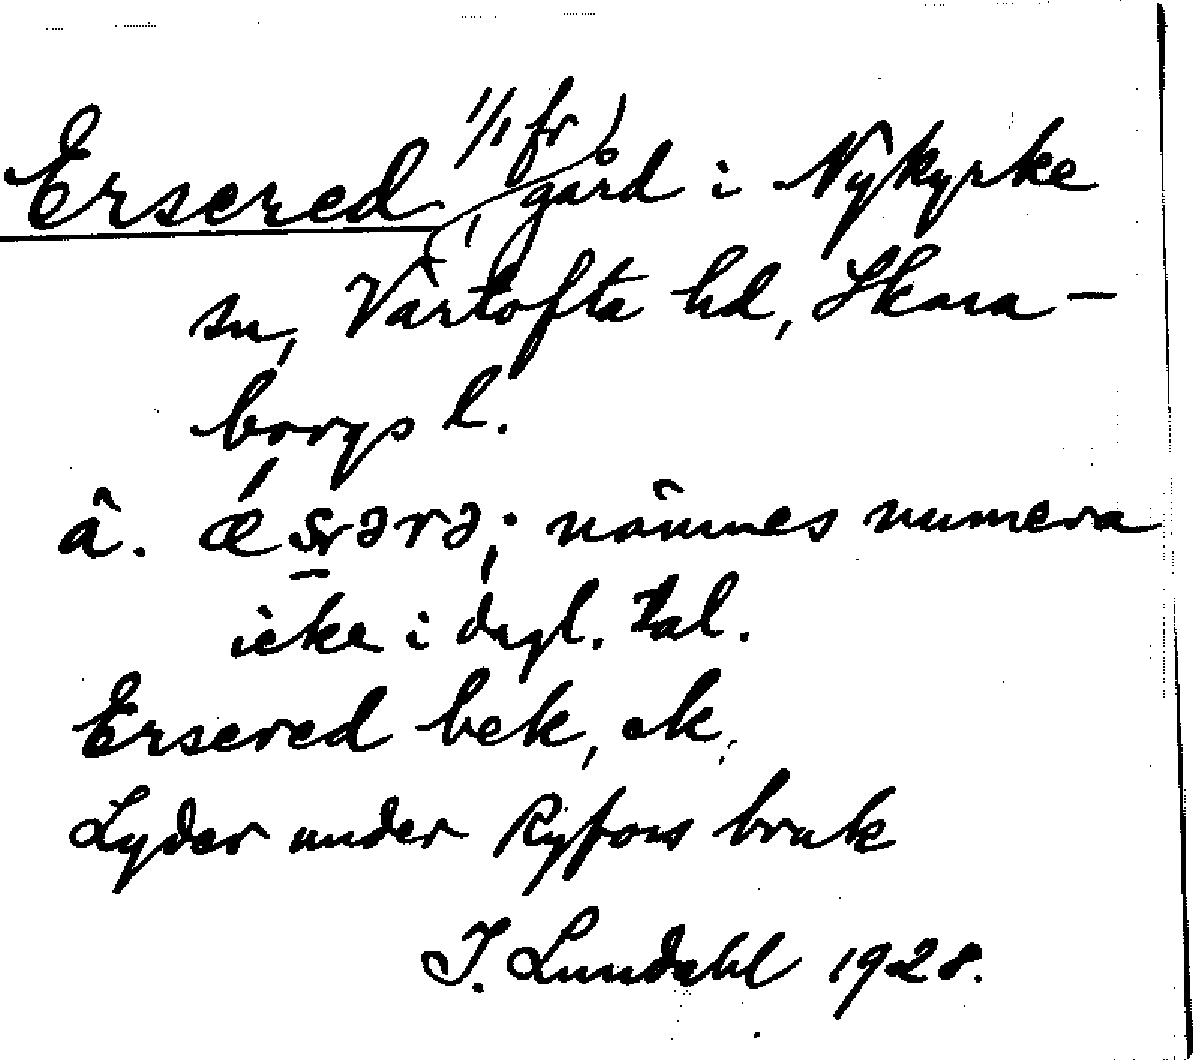 Ersered, 1/1 fr gård i Nykyrke
sn, Vartofta hd, Skara-
borgs l.
â. ǽsrərə; nämnes numera
icke i dagl. tal.
Ersered bek, ek,
Lyder under Ryfors bruk
I. Lundahl 1928.